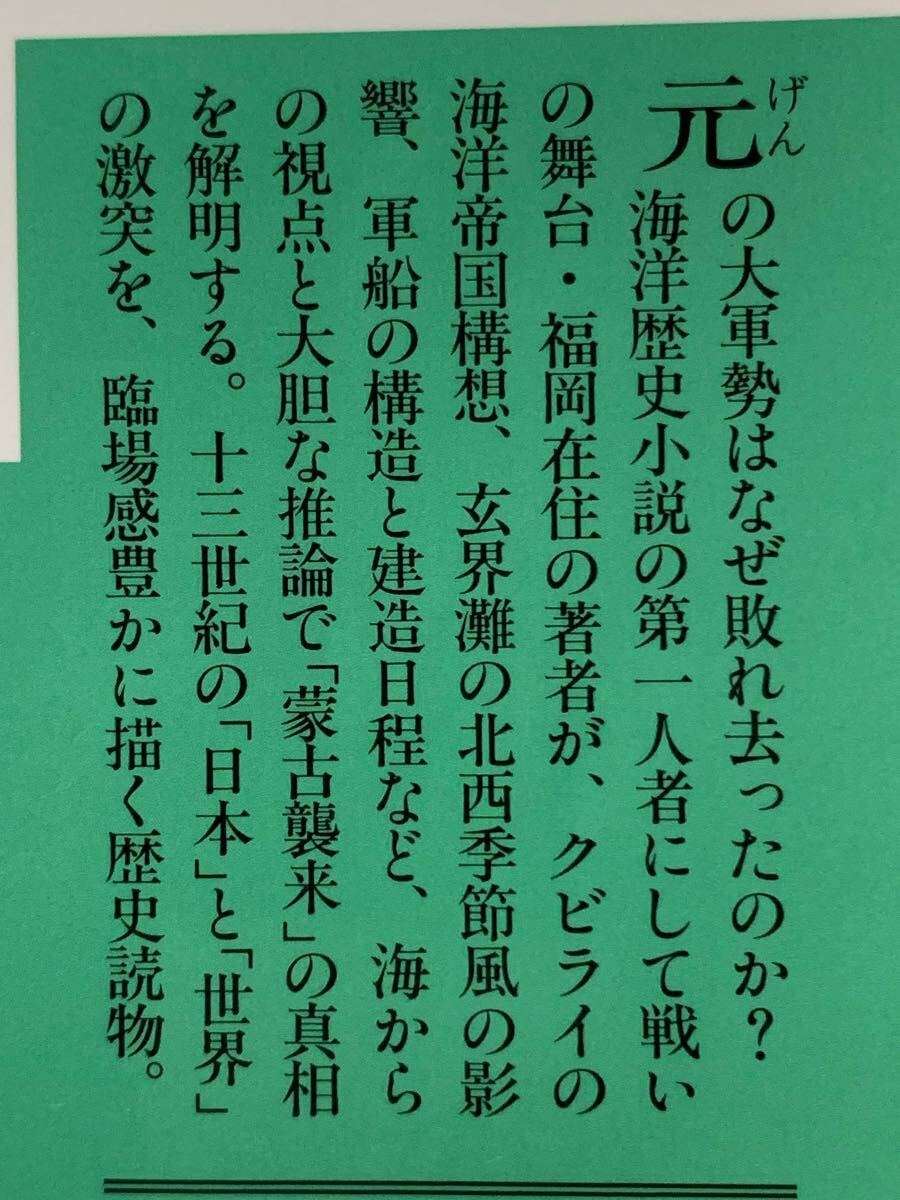 元の大軍勢はなぜ敗れ去ったのか?
げん
海洋歴史小説の第一人者にして戦い
の舞台・福岡在住の著者が、クビライの
海洋帝国構想、玄界灘の北西季節風の影
響、軍船の構造と建造日程など、海から
の視点と大胆な推論で「蒙古襲来」の真相
を解明する。十三世紀の「日本」と「世界」
の激突を、臨場感豊かに描く歴史読物。